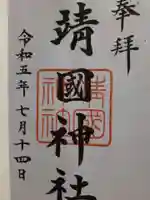 奉拝
靖國神社
令和五年七月十四日
靖國神社